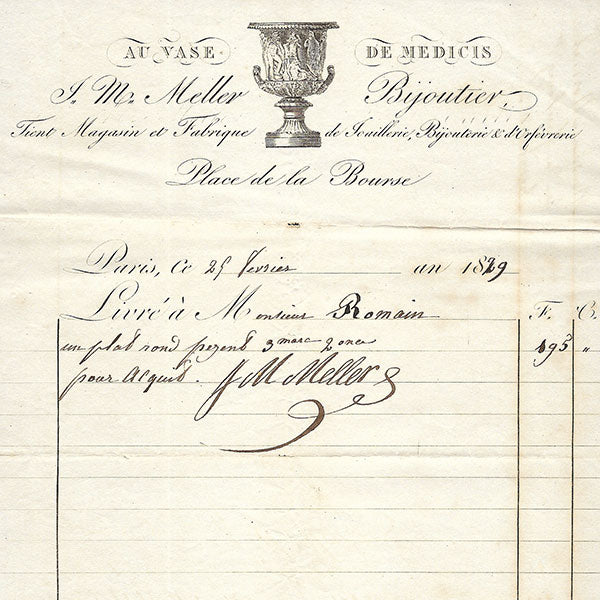 AU VASE DE MEDICIS
J. M. Meller Bijoutier,
Tient Magasin et Fabrique de Joaillerie, Bijouterie & d'Orfévrerie
Place de la Bourse
Paris, ce 25 fevrier an 1829
Livré à Monsieur Romain F. C.
un plat rond pezent 3 marc 2 once 195 "
pour Acquit. J M Meller